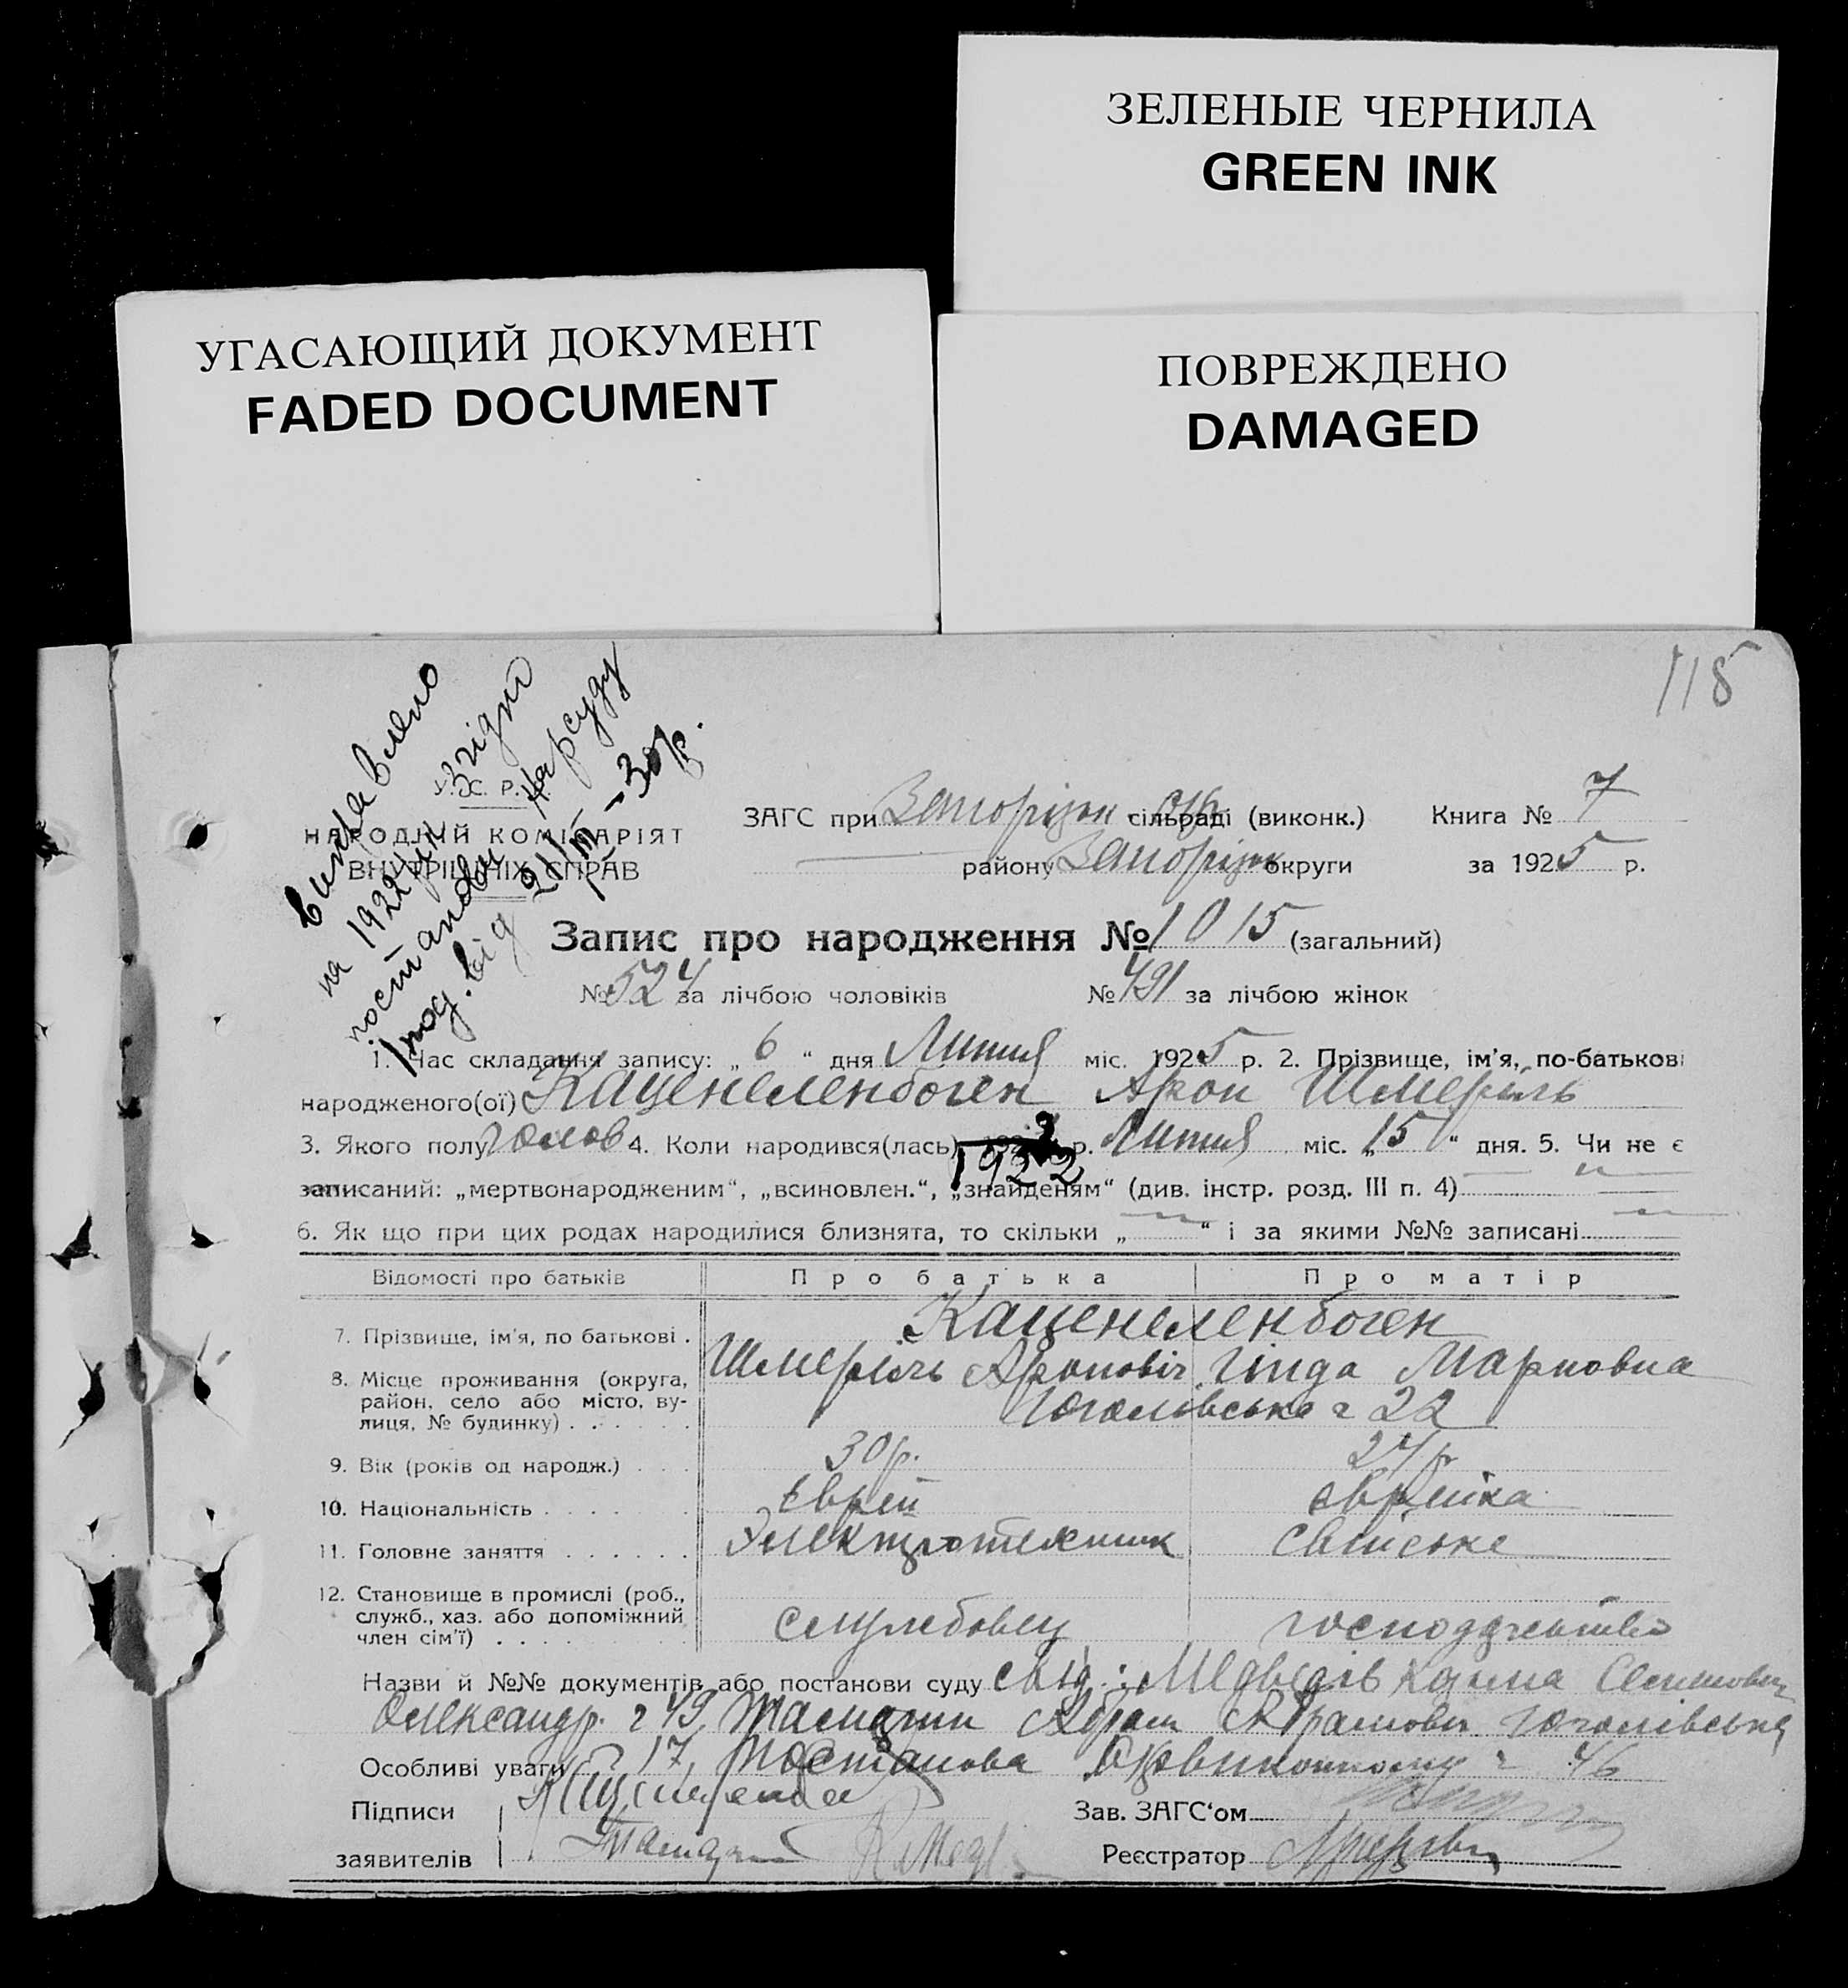 ЗЕЛЕНЫЕ ЧЕРНИЛА
GREEN INK
УГАСАЮЩИЙ ДОКУМЕНТ
FADED DOCUMENT
ПОВРЕЖДЕНО
DAMAGED
118
виправлено
на 1922 рік згідно
постанови Нарсуду
від 21/III-30р.
У. С. Р. Р.
НАРОДНІЙ КОМІСАРІЯТ
ВНУТРІШНІХ СПРАВ
ЗАГС при Запорізьк сільраді (виконк.) Книга № 7
району Запорізьк округи за 1925 р.
Запис про народження № 1015 (загальний)
№ 524 за лічбою чоловіків № 491 за лічбою жінок
1. Час складання запису: „ 6 “ дня Липня міс. 1925 р. 2. Прізвище, ім'я, по-батькові
народженого(ої) Каценеленбоген Арон Шмеріль
3. Якого полу чолов 4. Коли народився(лась) 192 р. Липня міс. „ 15 “ дня. 5. Чи не є
1922
записаний: „мертвонародженим“, „всиновлен.“, „знайденям“ (див. інстр. розд. III п. 4)
6. Як що при цих родах народилися близнята, то скільки „ “ і за якими №№ записані
Відомості про батьків Про батька Про матір
7. Прізвище, ім'я, по батькові . Каценеленбоген
Шмеріль Аронович Гінда Марковна
8. Місце проживання (округа, район, село або місто, вулиця, № будинку) . . . . . . Гоголівська 22
9. Вік (років од народж.) . . . 30р. 27р
10. Національність . . . . . Єврей єврейка
11. Головне заняття . . . . . . Электротехник свійське
12. Становище в промислі (роб., служб., хаз. або допоміжний член сім'ї) . . . . службовец господарство
Назви й №№ документів або постанови суду свід: Медведів
Олександр. 49, Абрам Абрамович Гоголівська
Особливі уваги 17, Постанова Окрвиконкому 46
Підписи Зав. ЗАГС‘ом
заявителів Реєстратор